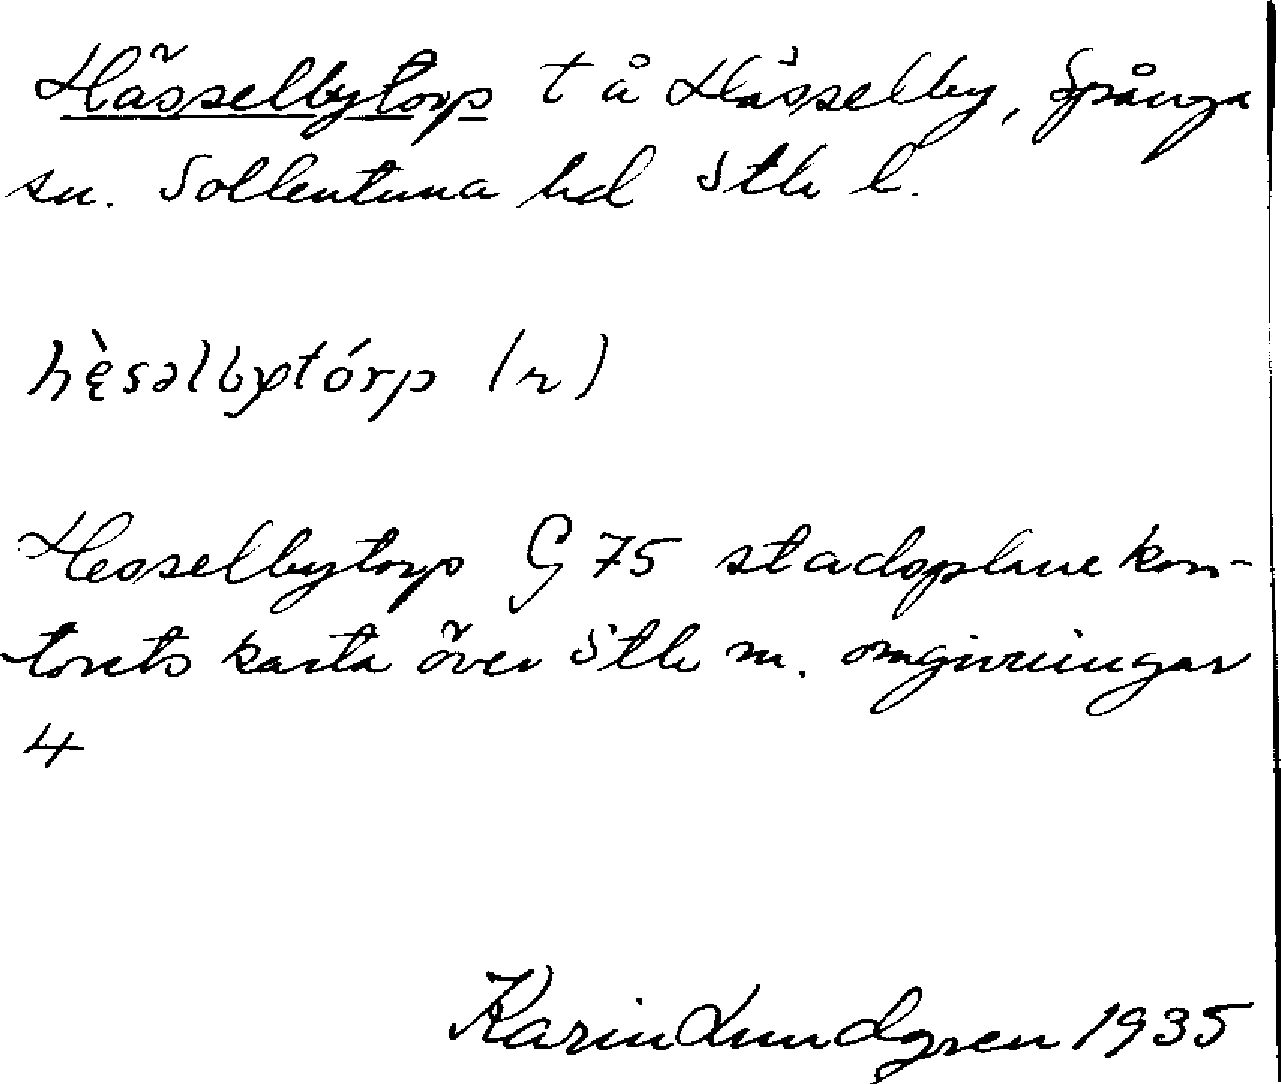 Hässelbytorp t å Hässelby, Spånga
sn. Sollentuna hd Sthlm l.
hę̀səlbytórp (r)
Hesselbytorp G 75 stadsplanekon-
torets karta över Sthlm m. omgivningar
4
Karin Lundgren 1935